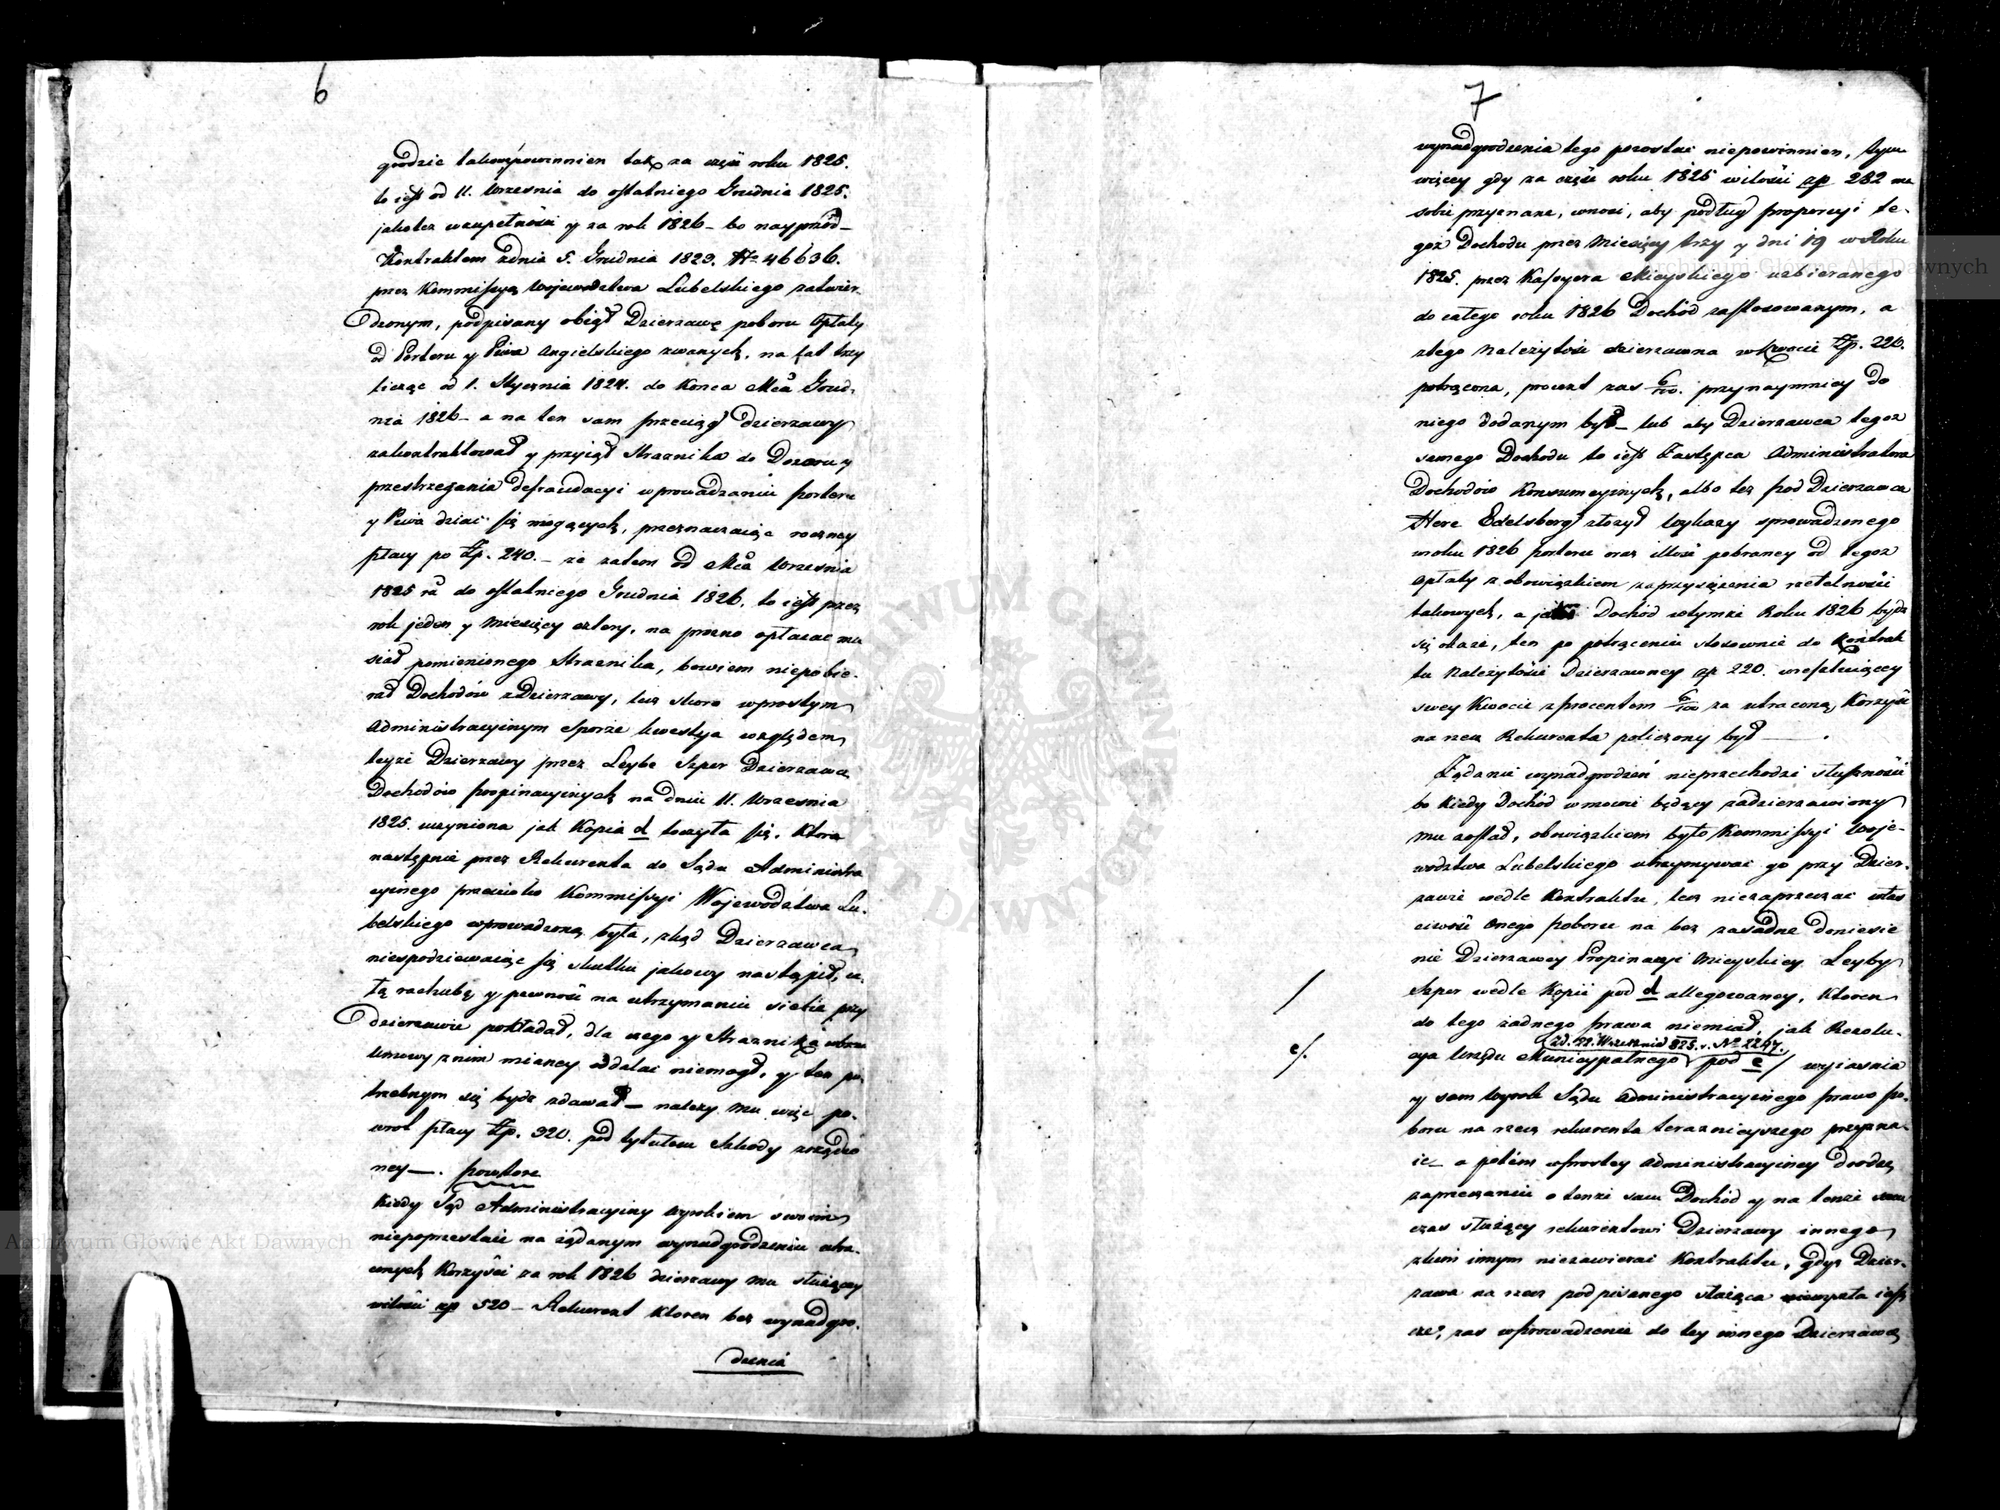 6
grodzie takowe powinnien tak za część roku 1825.
to iest od 11. Września do ostatniego Grudnia 1825.
jakotez w zupełności y za rok 1826 – bo nayprzód –
Kontraktem z dnia 5. Grudnia 1823. No 46636.
przez Kommissyą Woiewództwa Lubelskiego zatwier-
dzonym, podpisany obiął Dzierzawę poboru Opłaty
od Porteru y Piwa angielskiego zwanych, na lat trzy
licząc od 1. Stycznia 1824. do Konca Mca Grud-
nia 1826 – a na ten sam przeciąg dzierzawy
zakontraktował y przyiął Straznika do Dozoru y
przestrzegania defraudacyi w prowadzaniu porteru
y Piwa dziać się mogących, przeznaczaiąc roczney
płacy po Zp. 240. – ze zatem od Mca Wrzesnia
1825 ra do ostatniego Grudnia 1826, to iest przez
rok jeden y Miesięcy cztery, na prozno opłacac mu
siał pomienionego Straznika, bowiem niepobie-
rał Dochodów z Dzierzawy, lecz skoro w prostym
Administracyinym Sporze kwestya względem
teyze Dzierzawy przez Leybe Szper Dzierzawcę
Dochodów propinacyinych na dniu 11. Wrzesnia
1825. uczyniona jak Kopia d toczyła się, Ktora
następnie przez Rekurenta do Sądu Administra
cyinego przeciwko Kommissyi Woiewództwa Lu-
belskiego wprowadzoną była, zkąd Dzierzawca
niespodziewaiąc się skutku jakowy nastąpił, u-
fą rachubę y pewność na utrzymaniu siebie przy
dzierzawie pokładał, dla czego y Straznika wbrew
Umowy z nim mianey oddalać niemogł, y ten po
trzebnym się bydz zdawał – nalezy mu więc po-
wrot płacy Zp. 320. pod tytułem Szkody zrządzo
ney –. powtore
Kiedy Sąd Administracyiny wyrokiem swoim
niepoprzestaie na ządanym wynadgrodzeniu utra-
conych Korzyści za rok 1826 dzierzawy mu służącey
w ilości zp 520 – Rekurent Ktoren bez wynadgro-
dzenia
7
wynadgrodzenia tego pozostać niepowinnien, tym
więcey gdy za część roku 1825 w ilości zp 282 ma
sobie przyznane, wnosi, aby podług proporcyi te-
goz Dochodu przez Miesięcy trzy y dni 19 w Roku
1825. przez Kassyera Mieyskiego uzbieranego
do całego roku 1826 Dochód zastosowanym, a
ztego Nalezytość dzierzawna w kwocie Zp. 220.
potrącona, procent zas 6/100. przynaymniey do
niego dodanym był – lub aby Dzierzawca tegoz
samego Dochodu to iest Zastępca Administratora
Dochodów Konsumcyinych, albo tez pod Dzierzawca
Here Edelsberg złozył Wykazy sprowadzonego
w roku 1826 porteru oraz ilość pobraney od tegoz
opłaty z obowiązkiem zaprzysięzenia rzetelności
takowych, a Dochód w tymze Roku 1826 bydz
się okaze, ten po potrąceniu stosownie do Kontrak
tu Nalezytości Dzierzawney zp 220. w resztuiącey
swey Kwocie z procentem 6/100 za utraconą Korzyść
na rzecz Rekurenta policzony był –.
Ządanie wynadgrodzeń nieprzechodzi słuszności
bo Kiedy Dochód w mowie będący zadzierzawiony
mu został, obowiązkiem było Kommissyi Woie-
wodztwa Lubelskiego utrzymywac go przy Dzier-
zawie wedle Kontraktu, lecz niezaprzeczac właś
ciwość onego poboru na bez zasadne doniesie
nie Dzierzawcy Propinacyi Mieyskiey Leyby
Szper wedle Kopii pod d allegowaney, Ktoren
do tego zadnego prawa niemiał, jak Rezolu-
zd. 22. Wrzesnia 825. r. No 2247.
e/. cya Urzędu Municypalnego pod e/ wyiasnia
y sam Wyrok Sądu Administracyinego prawo po-
boru na rzecz rekurenta terazneyszego przyzna-
ie – a potém w prostey Administracyiney drodze
zaprzeczaniu o tenze sam Dochód y na tenze sam
czas służący rekurentowi Dzierzawy innego
z kim innym niezawierać Kontraktu, gdyz Dzier-
zawa na rzecz podpisanego służąca niewyszła iesz
cze, zas wprowadzenie do tey innego Dzierzawcę